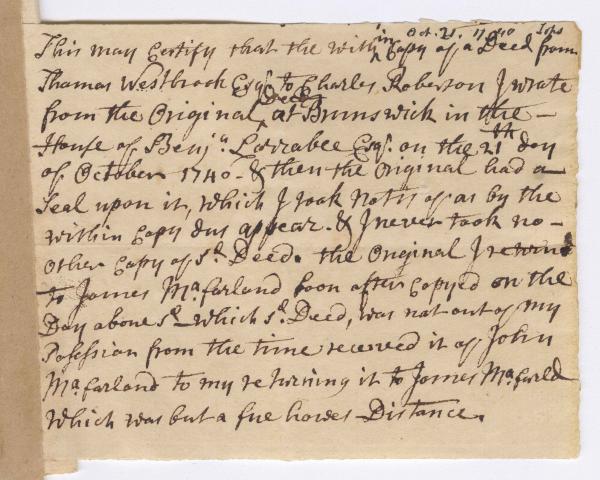 Oct. 21. 1740
This may Certify that the with in Copy of a Deed from
Thomas Westbrook Esqr. to Charles Roberson I wrote
from the Original Deed at Brunswick in the -
House of Benja. Larrabee Esqr. on the 21th day
of October 1740 - & then the original had a
Seal upon it, which I took Notis of as by the
within Copy dus appear. & I never took no -
Other Copy of sd. Deed. the Original I reternd
to James Macfarland soon after Copyed on the
Day above sd - which sd. Deed, was not out of my
Posession from the time receved it of John
Macfarland to my returning it to James Macfarld
Which was but a fue howes Distance.